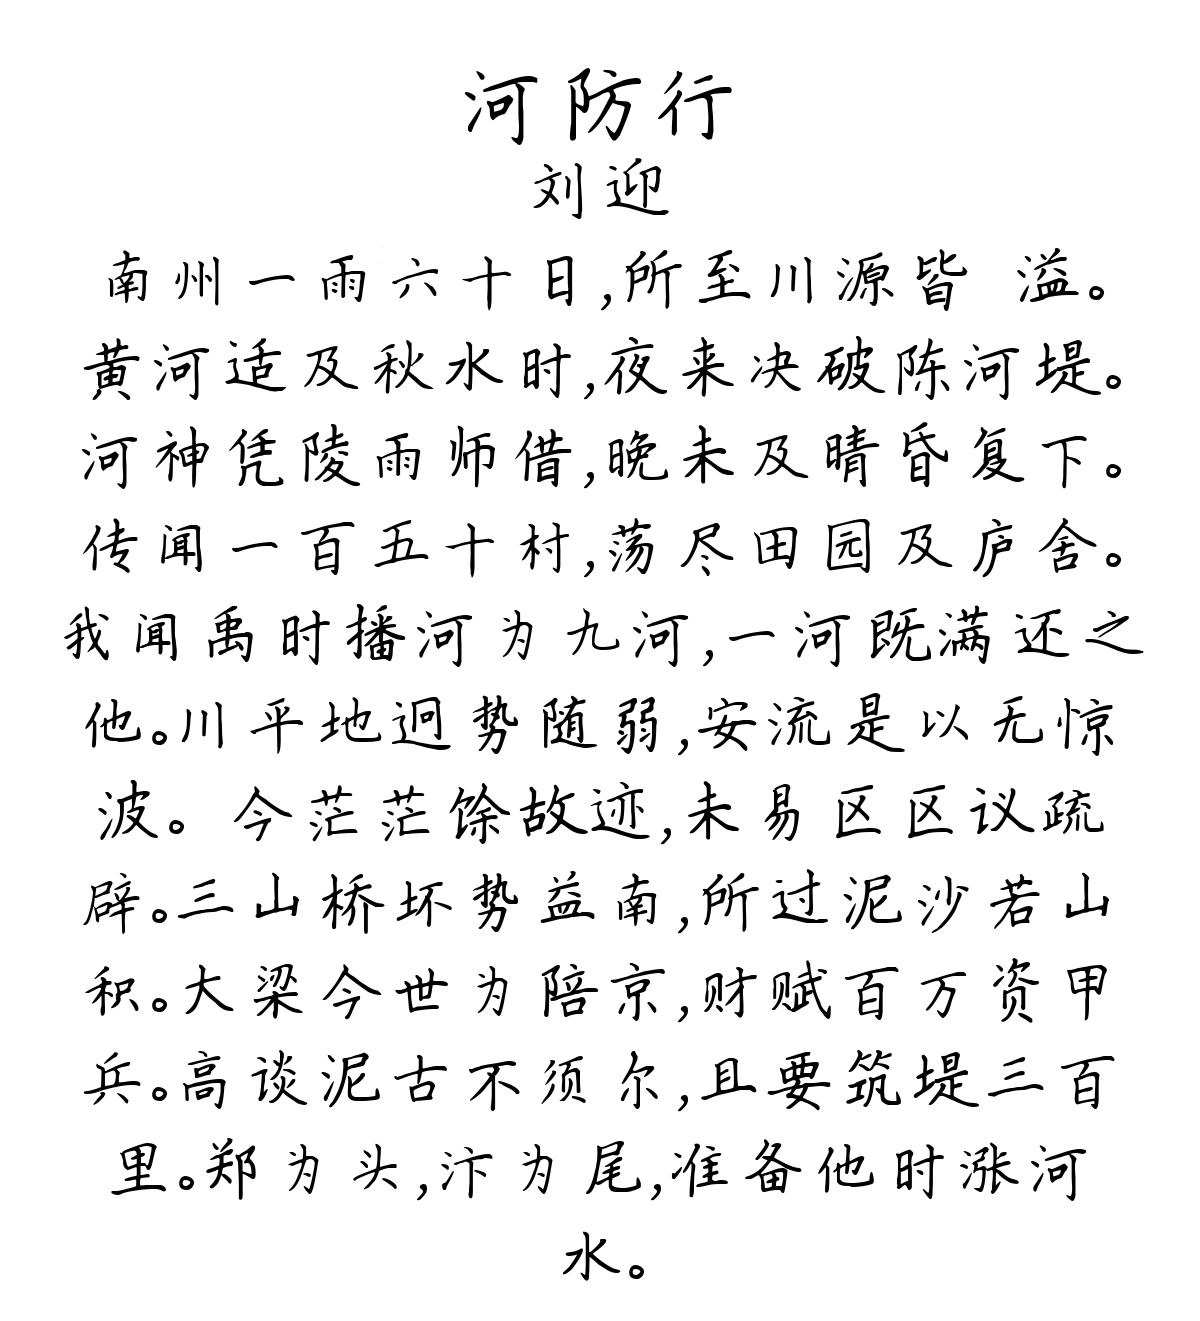 河防行
刘迎
南州一雨六十日,所至川源皆 溢。
黄河适及秋水时,夜来决破陈河堤。
河神凭陵雨师借,晚未及晴昏复下。
传闻一百五十村,荡尽田园及庐舍。
我闻禹时播河为九河,一河既满还之
他。川平地迥势随弱,安流是以无惊
波。今茫茫馀故迹,未易区区议疏
辟。三山桥坏势益南,所过泥沙若山
积。大梁今世为陪京,财赋百万资甲
兵。高谈泥古不须尔,且要筑堤三百
里。郑为头,汴为尾,准备他时涨河
水。